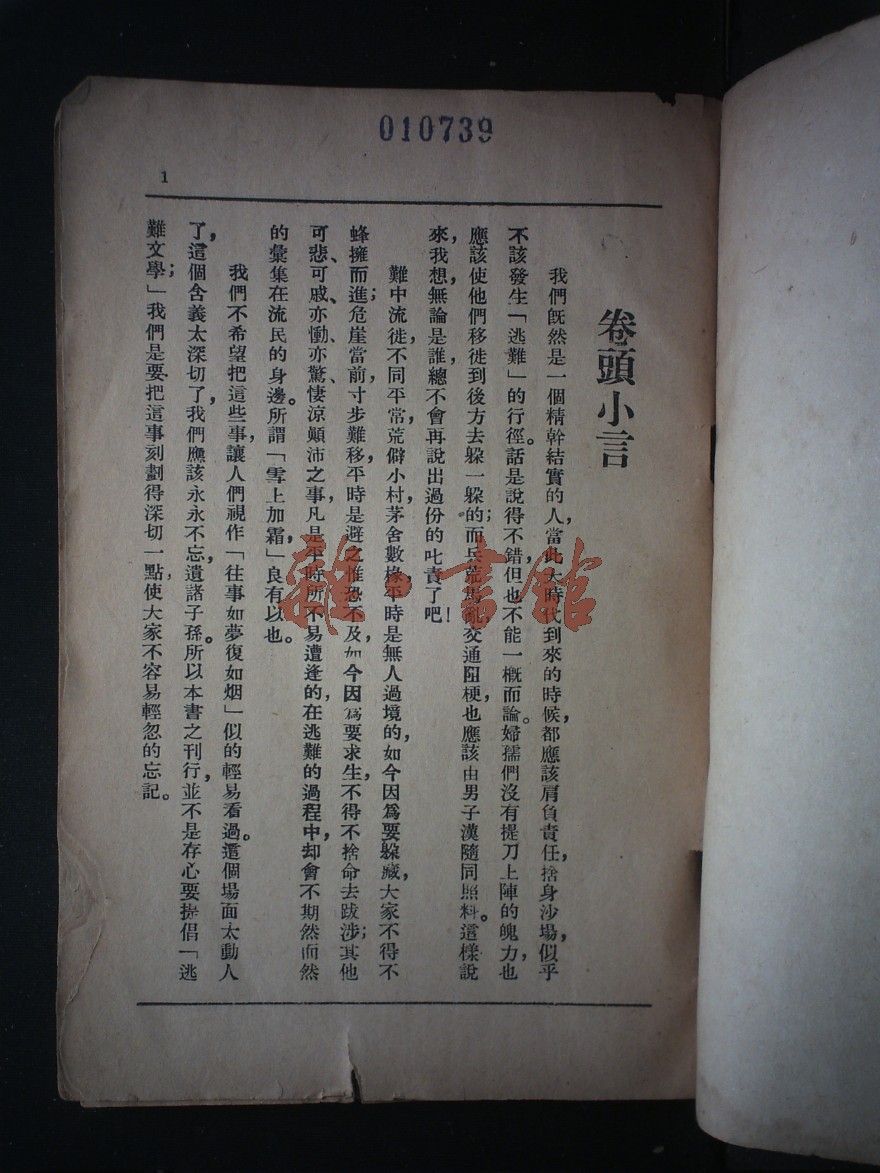 010739
1
卷頭小言
我們既然是一個精幹結實的人，當此大時代到來的時候，都應該肩負責任，捨身沙場，似乎
不該發生「逃難」的行徑。話是說得不錯，但也不能一概而論。婦孺們沒有提刀上陣的魄力，也
應該使他們移徙到後方去躲一躲的；而兵荒馬亂，交通阻梗，也應該由男子漢隨同照料。這樣說
來，我想，無論是誰，總不會再說出過份的叱責了吧！
難中流徙，不同平常，荒僻小村，茅舍數椽，平時是無人過境的，如今因爲要躲藏，大家不得不
蜂擁而進；危崖當前，寸步難移，平時是避之惟恐不及，如今因爲要求生，不得不捨命去跋涉；其他
可悲、可戚、亦慟、亦驚、悽涼顚沛之事，凡是平時所不易遭逢的，在逃難的過程中，却會不期然而然
的彙集在流民的身邊。所謂「雪上加霜，」良有以也。
我們不希望把這些事，讓人們視作「往事如夢復如烟」似的輕易看過。這個場面太動人
了，這個含義太深切了，我們應該永永不忘，遺諸子孫。所以本書之刊行，並不是存心要提倡「逃
難文學」；我們是要把這事刻劃得深切一點，使大家不容易輕忽的忘記。
雜·書館